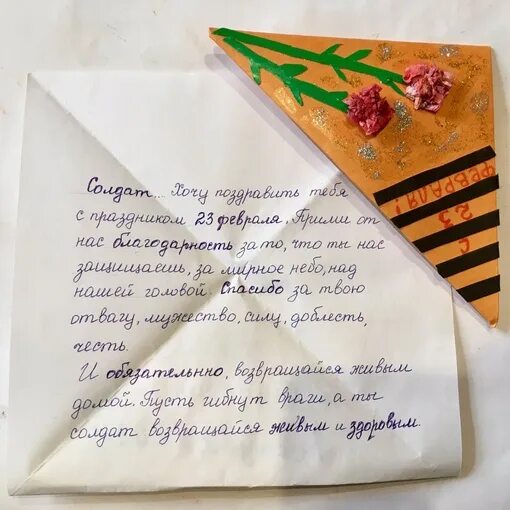 Солдат... Хочу поздравить тебя
с праздником 23 февраля. Прими от
нас благодарность за то, что ты нас
защищаешь, за мирное небо, над
нашей головой. Спасибо за твою
отвагу, мужество, силу, доблесть,
честь.
И обязательнно, возвращайся живым
домой. Пусть гибнут враги, а ты
солдат возвращайся живым и здоровым.
С 23
ФЕВРАЛЯ!